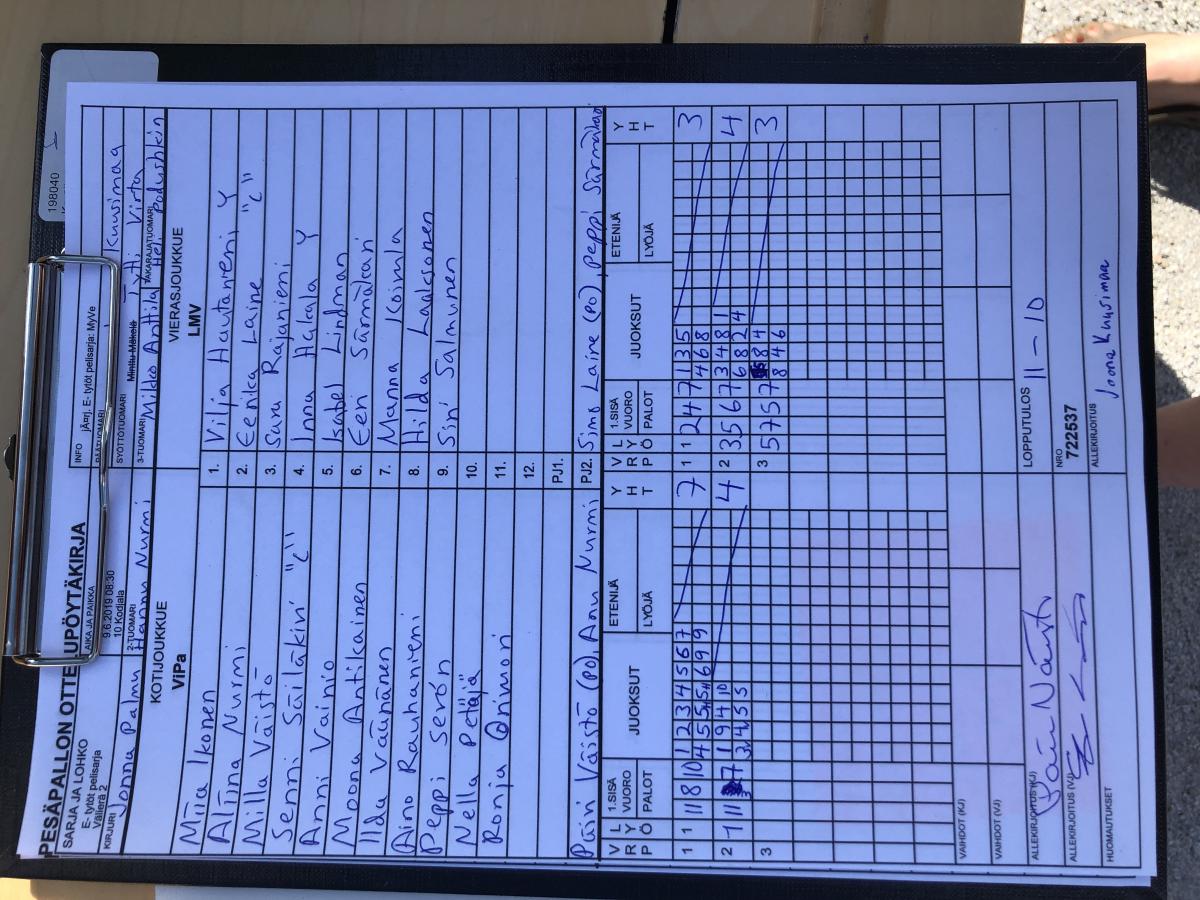 198040
PESÄPALLON OTTELUPÖYTÄKIRJA
SARJA JA LOHKO
E- tytöt pelisarja
Välierä 2
AIKA JA PAIKKA
9.6.2019 08:30
10 Kodjala
INFO jÄ¤rj. E- tytöt pelisarja: MyVe
KIRJURI Jonna Palmu
2-TUOMARI Hannu Nurmi
PÄÄTUOMARI Kuusimaa
SYÖTTÖTUOMARI Minttu Mäkelä Tytti Virta
3-TUOMARI Mikko Anttila
TAKARAJATUOMARI Heli Podushkin
KOTIJOUKKUE
ViPa
VIERASJOUKKUE
LMV
Miia Ikonen 1. Vilja Hautaniemi Y
Aliina Nurmi 2. Eerika Laine "C"
Milla Väistö 3. Sara Rajaniemi
Senni Säiläkivi "C" 4. Inna Hakala Y
Anni Vainio 5. Isabel Lindman
Moona Antikainen 6. Eeri Särmäkari
Ilda Väänänen 7. Manna Koimla
Aino Rauhaniemi 8. Hilda Laaksonen
Peppi Serón 9. Sini Salmunen
Nella Petäjä 10.
Ronja Orimori 11.
12.
PJ1.
Päivi Väistö (PO), Anu Nurmi PJ2. Simo Laine (PO), Peppi Särmäkari
V R P L Y Ö 1.SISÄ VUORO PALOT JUOKSUT ETENIJÄ LYÖJÄ Y H T V R P L Y Ö 1.SISÄ VUORO PALOT JUOKSUT ETENIJÄ LYÖJÄ Y H T
1 1 11 8 10 1 2 3 4 5 6 7 7 1 1 2 4 7 1 3 5 3
4 5 5 5 6 9 9 4 6 8
2 7 11 7 1 9 4 10 4 2 3 5 6 7 3 4 8 1 4
3 4 5 5 6 8 2 4
3 3 5 7 5 7 8 4 3
8 4 6
VAIHDOT (KJ)
VAIHDOT (VJ)
ALLEKIRJOITUS (KJ) Päivi Väistö
LOPPUTULOS 11 - 10
ALLEKIRJOITUS (VJ)
NRO
722537
HUOMAUTUKSET
ALLEKIRJOITUS Joona Kuusimaa